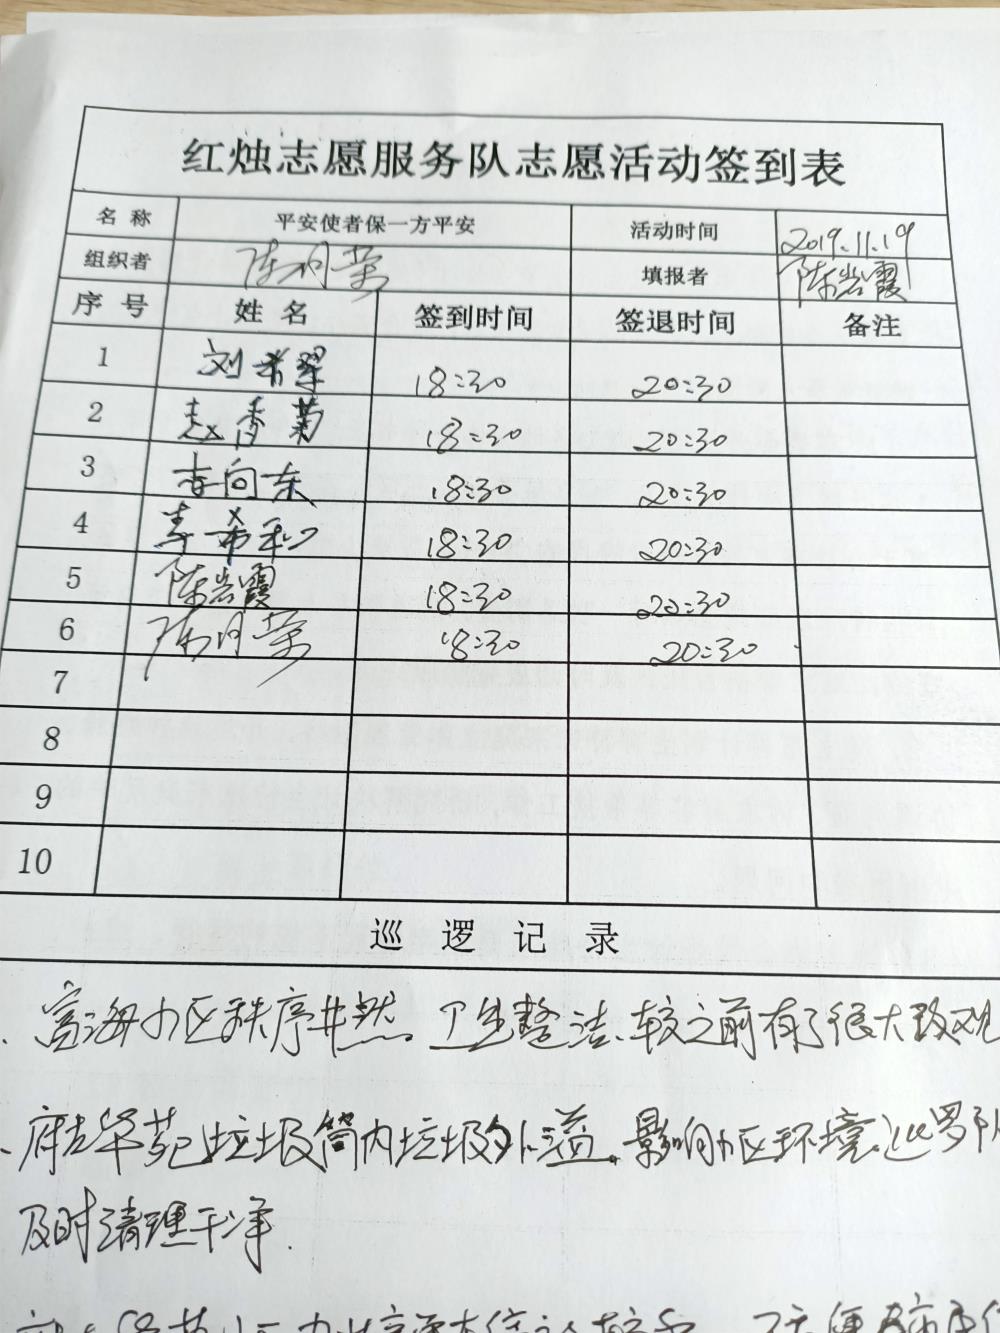 红烛志愿服务队志愿活动签到表
名称 平安使者保一方平安 活动时间 2019.11.19
组织者 陈月荣 填报者 陈岩霞
序号 姓名 签到时间 签退时间 备注
1 刘希翠 18:30 20:30
2 赵香菊 18:30 20:30
3 李向东 18:30 20:30
4 李希和 18:30 20:30
5 陈岩霞 18:30 20:30
6 陈月荣 18:30 20:30
7
8
9
10
巡逻记录
、富海小区秩序井然。卫生整洁、较之前有了很大改观
、府左华苑垃圾筒内垃圾外溢。影响小区环境.巡罗队
及时清理干净.